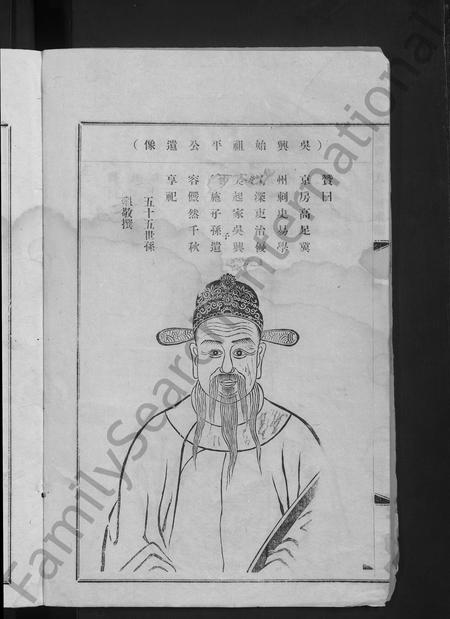 （吳興始祖平公遺像）
贊曰
京房高足冀
州刺史易學
深吏治優
起家吳興
施子孫遺
容儼然千秋
享祀
五十五世孫
敬撰
FamilySearch International